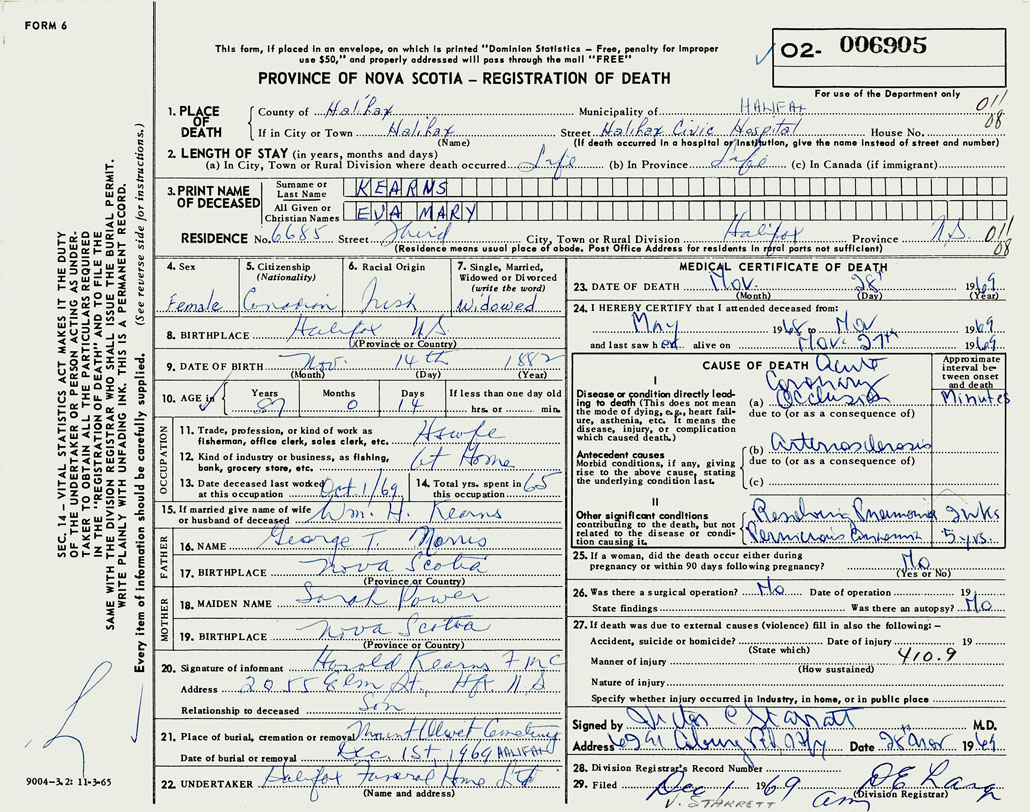 FORM 6
This form, if placed in an envelope, on which is printed "Dominion Statistics – Free, penalty for improper
use $50," and properly addressed will pass through the mail "FREE"
02- 006905
PROVINCE OF NOVA SCOTIA – REGISTRATION OF DEATH
For use of the Department only
1. PLACE OF DEATH
County of Halifax Municipality of HALIFAX 011
If in City or Town Halifax Street Halifax Civic Hospital House No. 08
(Name) (If death occurred in a hospital or institution, give the name instead of street and number)
2. LENGTH OF STAY (in years, months and days)
(a) In City, Town or Rural Division where death occurred Life (b) In Province Life (c) In Canada (if immigrant)
3. PRINT NAME OF DECEASED
Surname or Last Name KEARNS
All Given or Christian Names EVA MARY
RESIDENCE No. 6685 Street Third City, Town or Rural Division Halifax Province N.S. 011
(Residence means usual place of abode. Post Office Address for residents in rural parts not sufficient) 08
4. Sex
Female
5. Citizenship
(Nationality)
Canadian
6. Racial Origin
Irish
7. Single, Married,
Widowed or Divorced
(write the word)
Widowed
8. BIRTHPLACE Halifax N.S.
(Province or Country)
9. DATE OF BIRTH Nov. 14th 1882
(Month) (Day) (Year)
10. AGE in
Years 87 Months 0 Days 14 If less than one day old
hrs. or min.
OCCUPATION
11. Trade, profession, or kind of work as
fisherman, office clerk, sales clerk, etc. Hswfe
12. Kind of industry or business, as fishing,
bank, grocery store, etc. At Home
13. Date deceased last worked
at this occupation Oct. 1/69
14. Total yrs. spent in
this occupation 65
15. If married give name of wife
or husband of deceased Wm. H. Kearns
FATHER
16. NAME George T. Morris
17. BIRTHPLACE Nova Scotia
(Province or Country)
MOTHER
18. MAIDEN NAME Sarah Power
19. BIRTHPLACE Nova Scotia
(Province or Country)
20. Signature of informant Harold Kearns
Address 2055 Elm St., Hfx N.S
Relationship to deceased Son
21. Place of burial, cremation or removal Mount Olivet Cemetery
Date of burial or removal Dec. 1st, 1969 HALIFAX
22. UNDERTAKER Halifax Funeral Home Ltd
(Name and address)
MEDICAL CERTIFICATE OF DEATH
23. DATE OF DEATH Nov. 28th 1969
(Month) (Day) (Year)
24. I HEREBY CERTIFY that I attended deceased from:
May 1968 to Nov 1969
and last saw her alive on Nov. 27th 1969
CAUSE OF DEATH
Approximate
interval be-
tween onset
and death
I
Disease or condition directly lead-
ing to death (This does not mean
the mode of dying, e.g., heart fail-
ure, asthenia, etc. It means the
disease, injury, or complication
which caused death.)
Acute
Coronary
(a) Occlusion Minutes
due to (or as a consequence of)
Antecedent causes
Morbid conditions, if any, giving
rise to the above cause, stating
the underlying condition last.
(b) Arteriosclerosis
due to (or as a consequence of)
(c)
II
Other significant conditions
contributing to the death, but not
related to the disease or condi-
tion causing it.
Resolving Pneumonia 2 wks
Pernicious 5 yrs.
25. If a woman, did the death occur either during
pregnancy or within 90 days following pregnancy? No
(Yes or No)
26. Was there a surgical operation? No Date of operation 19
State findings Was there an autopsy? No
27. If death was due to external causes (violence) fill in also the following: –
Accident, suicide or homicide? Date of injury 19
(State which)
Manner of injury 410.9
(How sustained)
Nature of injury
Specify whether injury occurred in industry, in home, or in public place
Signed by M.D.
Address Date 28 Nov 1969
28. Division Registrar's Record Number
29. Filed Dec 1 1969
(Division Registrar)
V. STARRETT
SEC. 14 – VITAL STATISTICS ACT MAKES IT THE DUTY
OF THE UNDERTAKER OR PERSON ACTING AS UNDER-
TAKER TO OBTAIN ALL THE PARTICULARS REQUIRED
IN THE "REGISTRATION OF DEATH" AND TO FILE THE
SAME WITH THE DIVISION REGISTRAR WHO SHALL ISSUE THE BURIAL PERMIT.
WRITE PLAINLY WITH UNFADING INK. THIS IS A PERMANENT RECORD.
Every item of information should be carefully supplied. (See reverse side for instructions.)
9004-3.2: 11-3-65